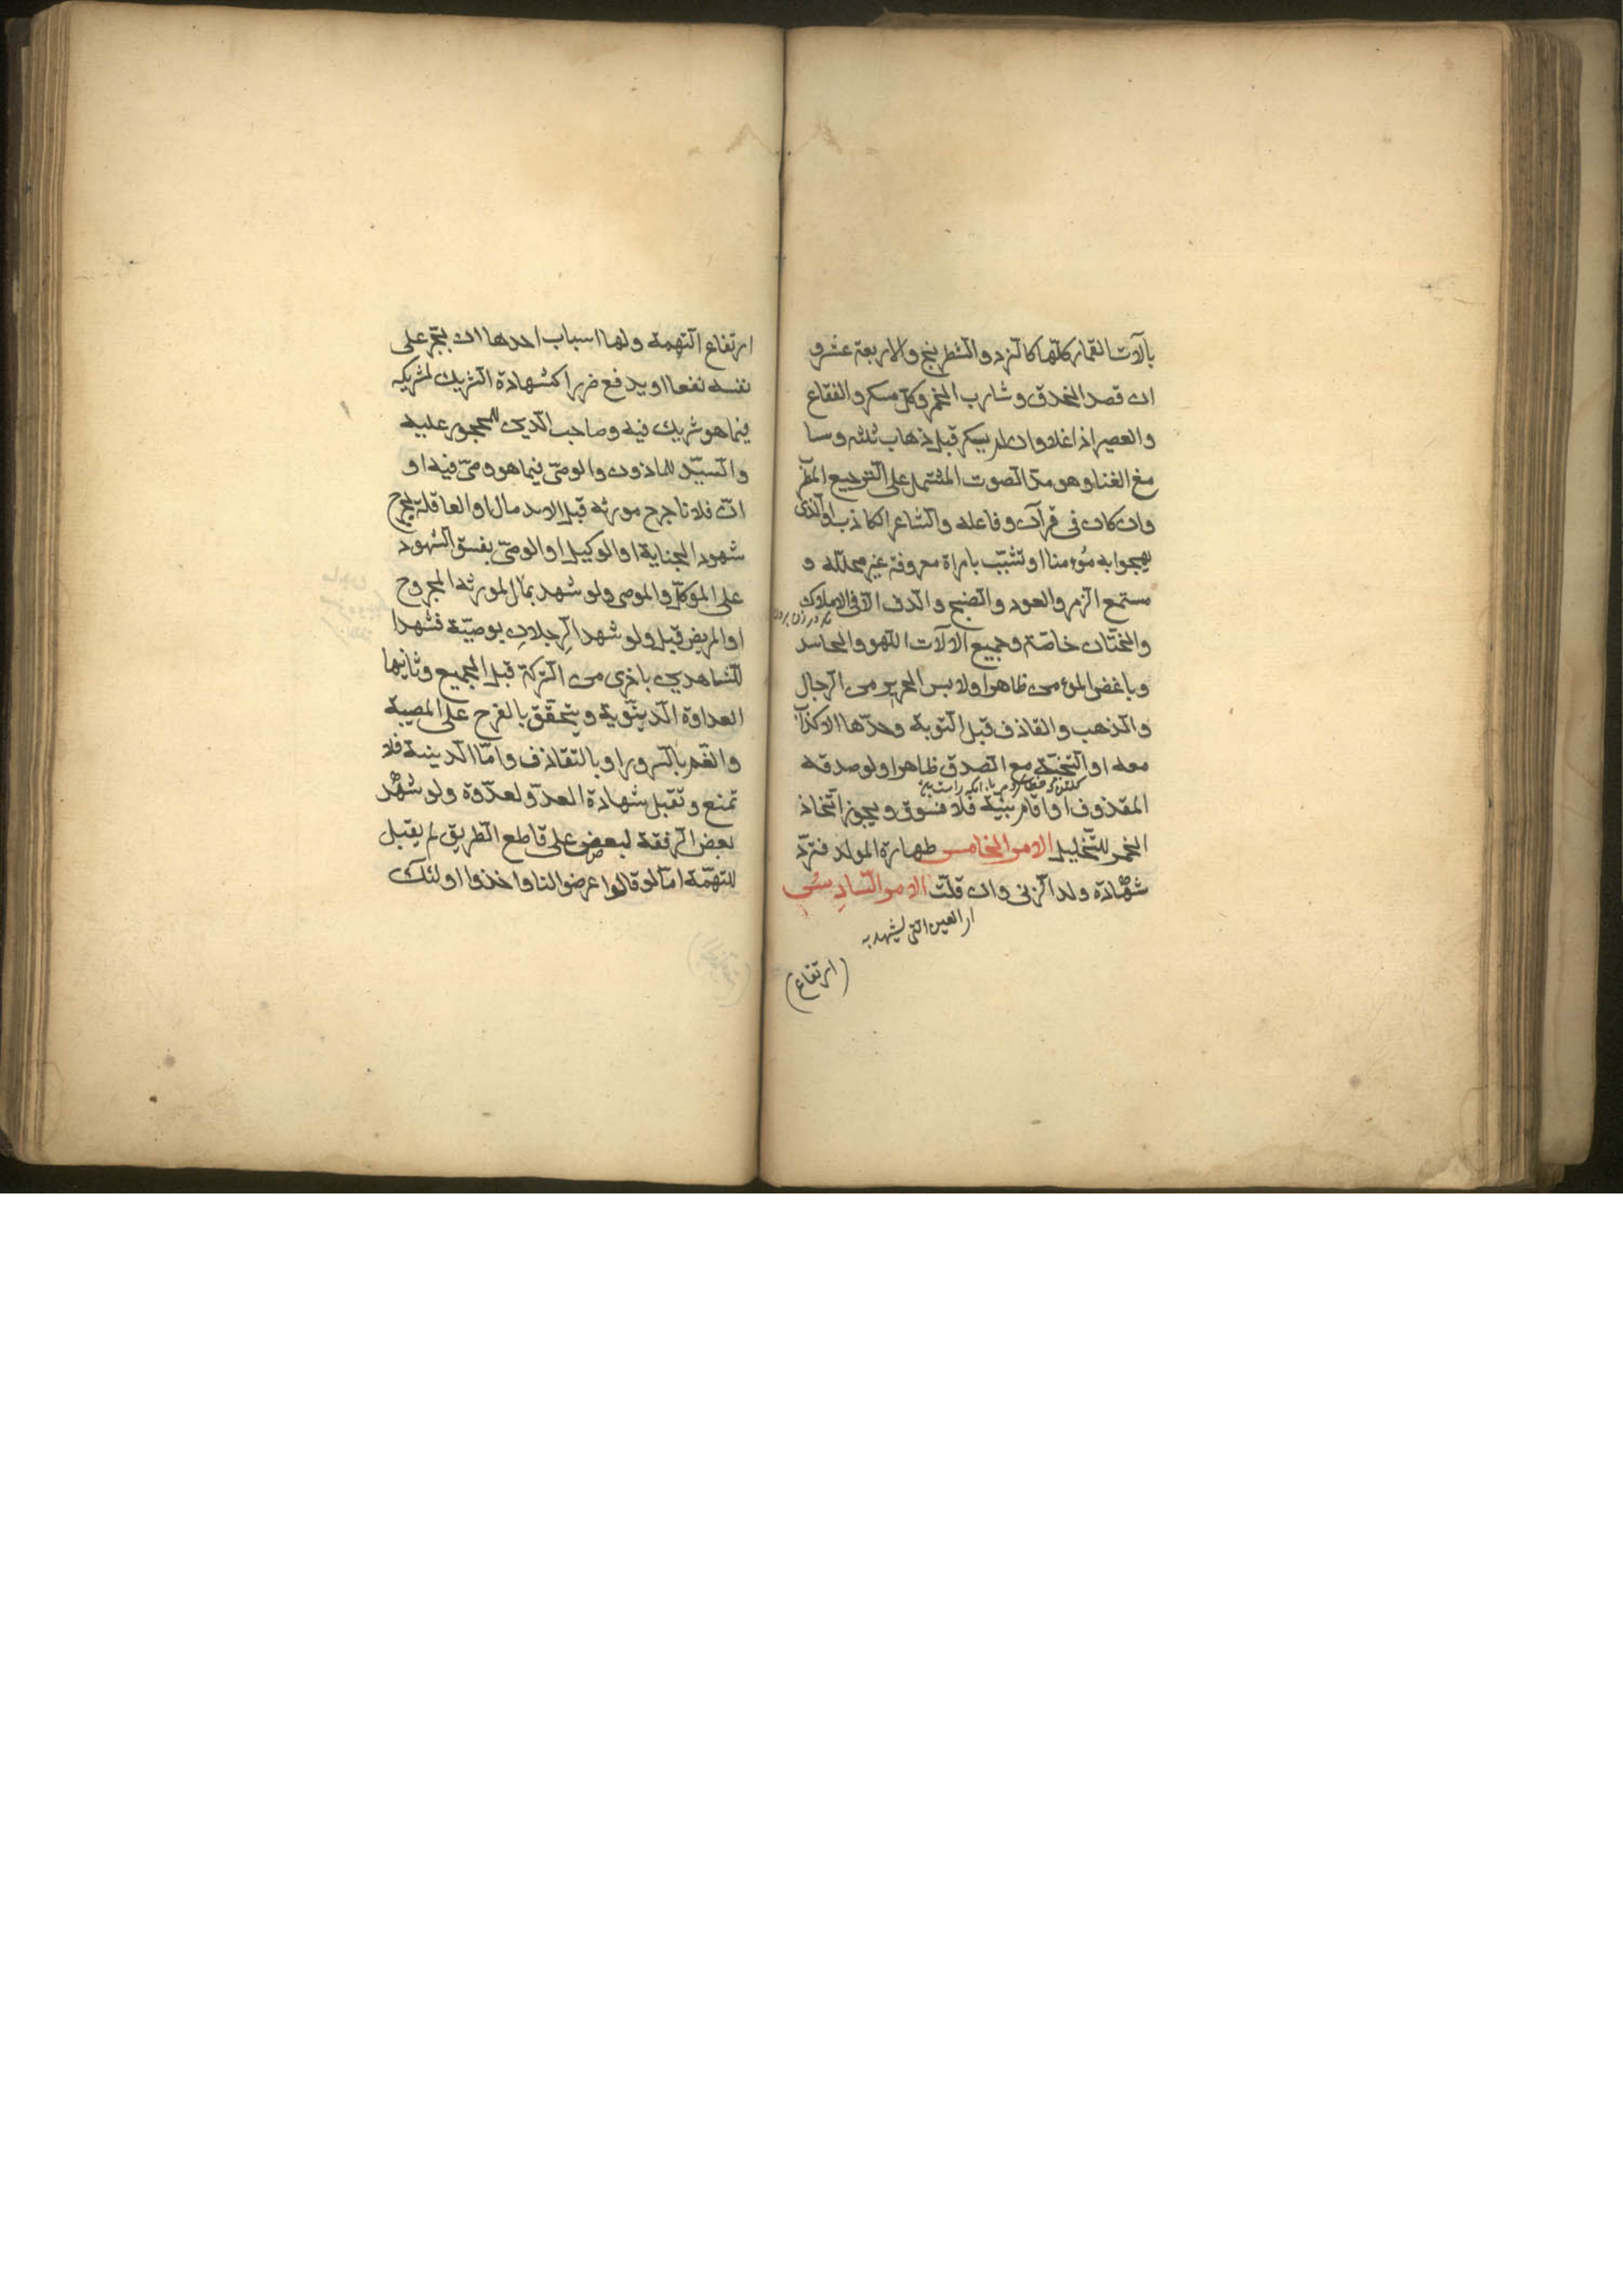 بالآت القمار كلّها كالنرد والشطرنج والاربعة عشر و
ان قصد الحذق وشارب الخمر وكلّ مسكر والفقاع
والعصير اذا غلا وان لم يسكر قبل ذهاب ثلثه وسا
مع الغنا وهو مدّ الصوت المشتمل على الترجيع المطر
وان كان في قرآن وفاعله والشاعر الكاذب او الذى
يهجوا به مؤمنا او تشبّب بامراة معروفة غير محللّه و
مستمع الزمر والعود والصنج والدف الا في الاملاك
والختان خاصّة وجميع الالات اللهو والحاسد
وباغض المؤمن ظاهرا ولابس الحرير من الرجال
والذهب والقاذف قبل التوبة وحدّها الاكذاب
معه او التخطئة مع الصدق ظاهرا ولو صدقه
المقذوف او اقام بيّنة فلا فسوق ويجوز اتخاذ
الخمر للتخليل الامر الخامس طهارة المولد فتردّ
شهادة ولد الزنى وان قلّت الامر السادس
التى يشهد به
(ارتفاع)
ارتفاع التهمة ولها اسباب احدها ان يجرّ على
نفسه نفعا او يدفع ضررا كشهادة الشريك لشريكه
فيما هو شريك فيه وصاحب الدين للمحجور عليه
والسيّد للماذون والوصىّ فيما هو وصىّ فيه او
انّ فلانا جرح مورثه قبل الاندمال او العاقلة بجرح
شهود الجناية او الوكيل او الوصىّ بفسق الشهود
على الموكّل والموصى ولو شهد بمال لمورثه المجروح
او المريض قبل ولو شهد الرجلان بوصيّة فشهدا
للشاهدين باخرى من التركة قبل الجميع وثانيها
العداوة الدنيويّة ويتحقق بالفرح على المصيبة
والغم بالسرور او بالتقاذف وامّا الدينية فلا
تمنع وتقبل شهادة العدوّ لعدوّه ولو شهد
بعض الرفقة لبعض على قاطع الطريق لم يقبل
للتهمّة امّا لو قالوا عرضوا لنا واخذوا اولئك